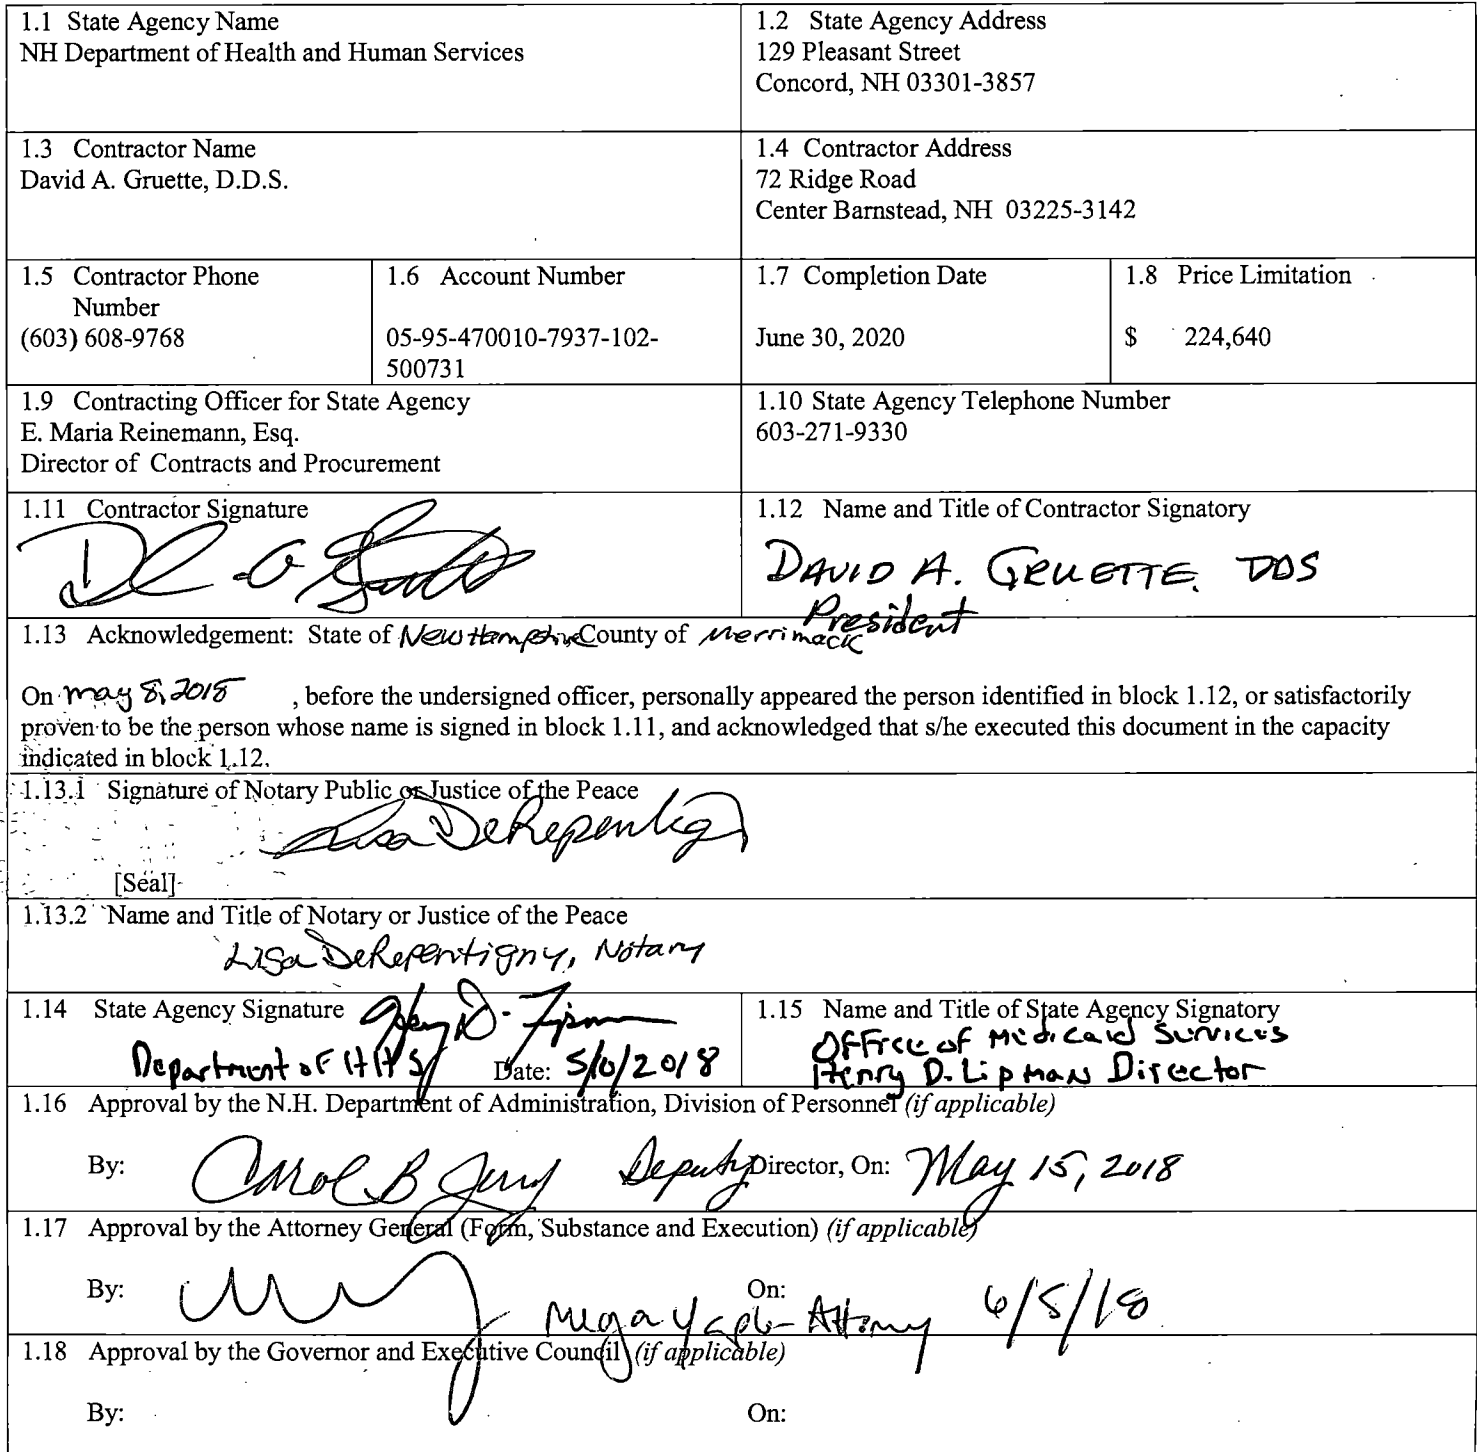 1.1 State Agency Name
NH Department of Health and Human Services
1.2 State Agency Address
129 Pleasant Street
Concord, NH 03301-3857
1.3 Contractor Name
David A. Gruette, D.D.S.
1.4 Contractor Address
72 Ridge Road
Center Barnstead, NH 03225-3142
1.5 Contractor Phone
Number
(603) 608-9768
1.6 Account Number
05-95-470010-7937-102-
500731
1.7 Completion Date
June 30, 2020
1.8 Price Limitation
$ 224,640
1.9 Contracting Officer for State Agency
E. Maria Reinemann, Esq.
Director of Contracts and Procurement
1.10 State Agency Telephone Number
603-271-9330
1.11 Contractor Signature
1.12 Name and Title of Contractor Signatory
DAVID A. GRUETTE, DDS
President
1.13 Acknowledgement: State of New Hampshire County of Merrimack
On May 8, 2018 , before the undersigned officer, personally appeared the person identified in block 1.12, or satisfactorily
proven to be the person whose name is signed in block 1.11, and acknowledged that s/he executed this document in the capacity
indicated in block 1.12.
1.13.1 Signature of Notary Public or Justice of the Peace
Lisa DeRepentigny
[Seal]
1.13.2 Name and Title of Notary or Justice of the Peace
Lisa DeRepentigny, Notary
1.14 State Agency Signature
Department of HHS Date:
1.15 Name and Title of State Agency Signatory
Office of Medicaid Services
Henry D. Lipman Director
1.16 Approval by the N.H. Department of Administration, Division of Personnel (if applicable)
By: Carol B Deputy Director, On: May 15, 2018
1.17 Approval by the Attorney General (Form, Substance and Execution) (if applicable)
By: On:
Attorney 6/5/18
1.18 Approval by the Governor and Executive Council (if applicable)
By: On: